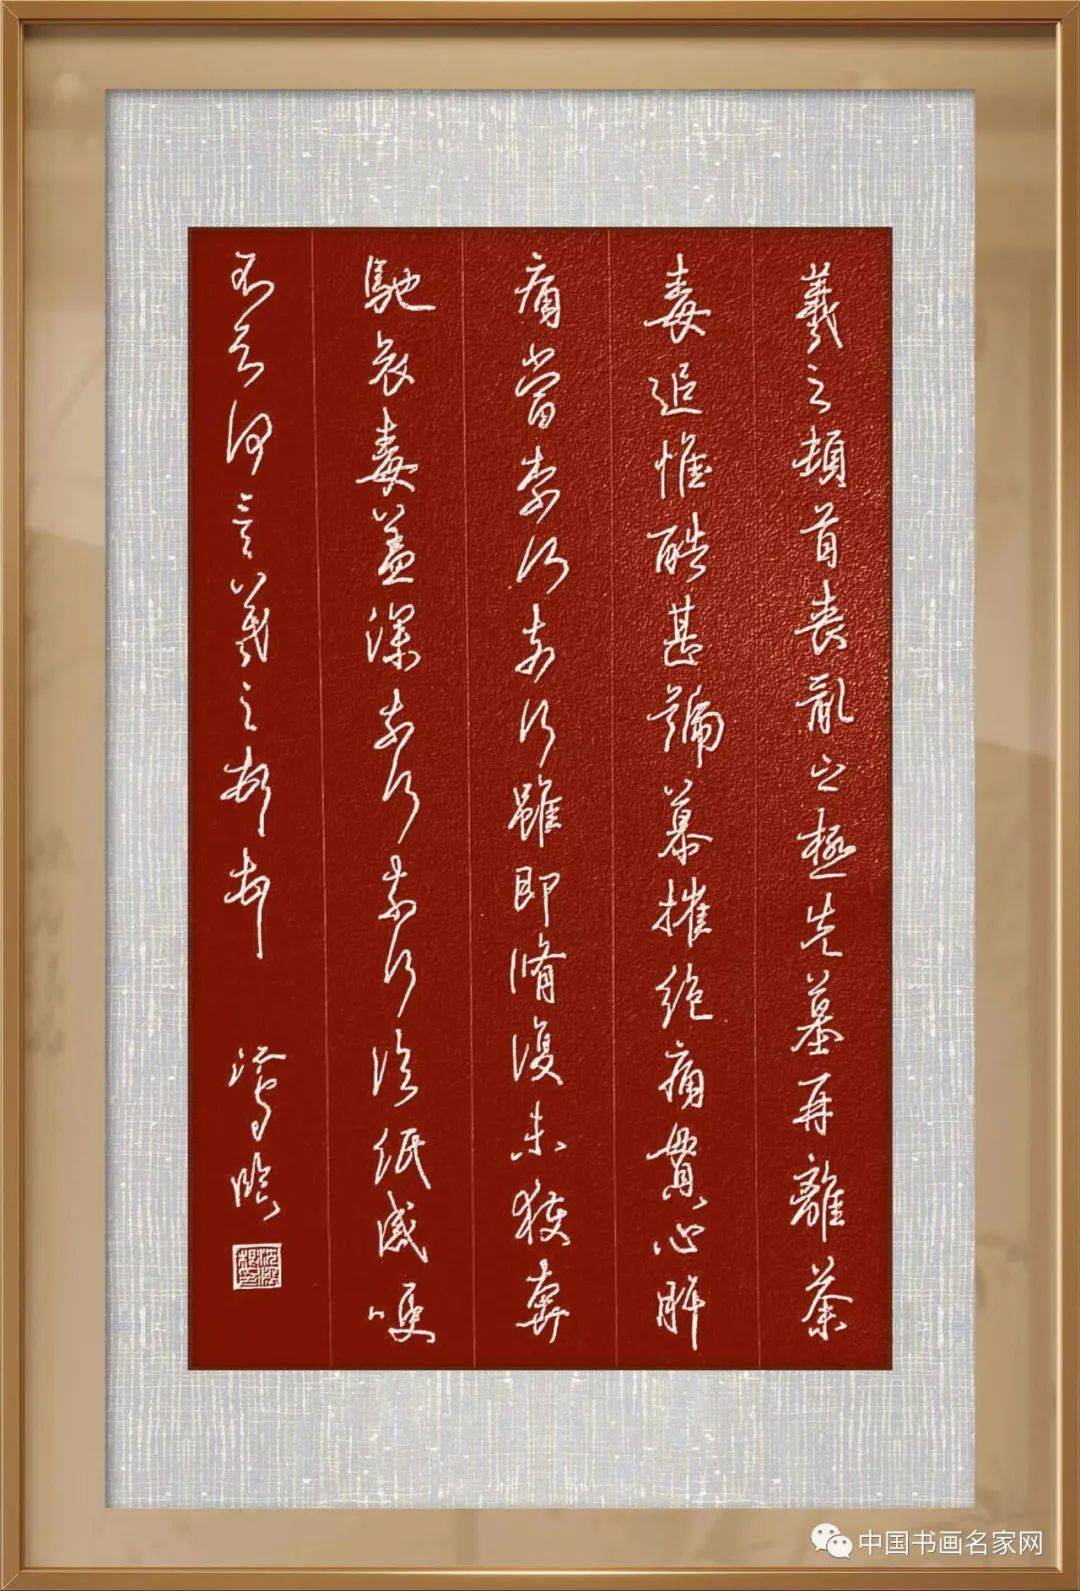 羲之頓首喪亂之極先墓再離荼
毒追惟酷甚號慕摧絶痛貫心肝
痛當奈何奈何雖即脩復未獲奔
馳哀毒益深奈何奈何臨紙感哽
不知何言羲之頓首頓首 臨
中国书画名家网